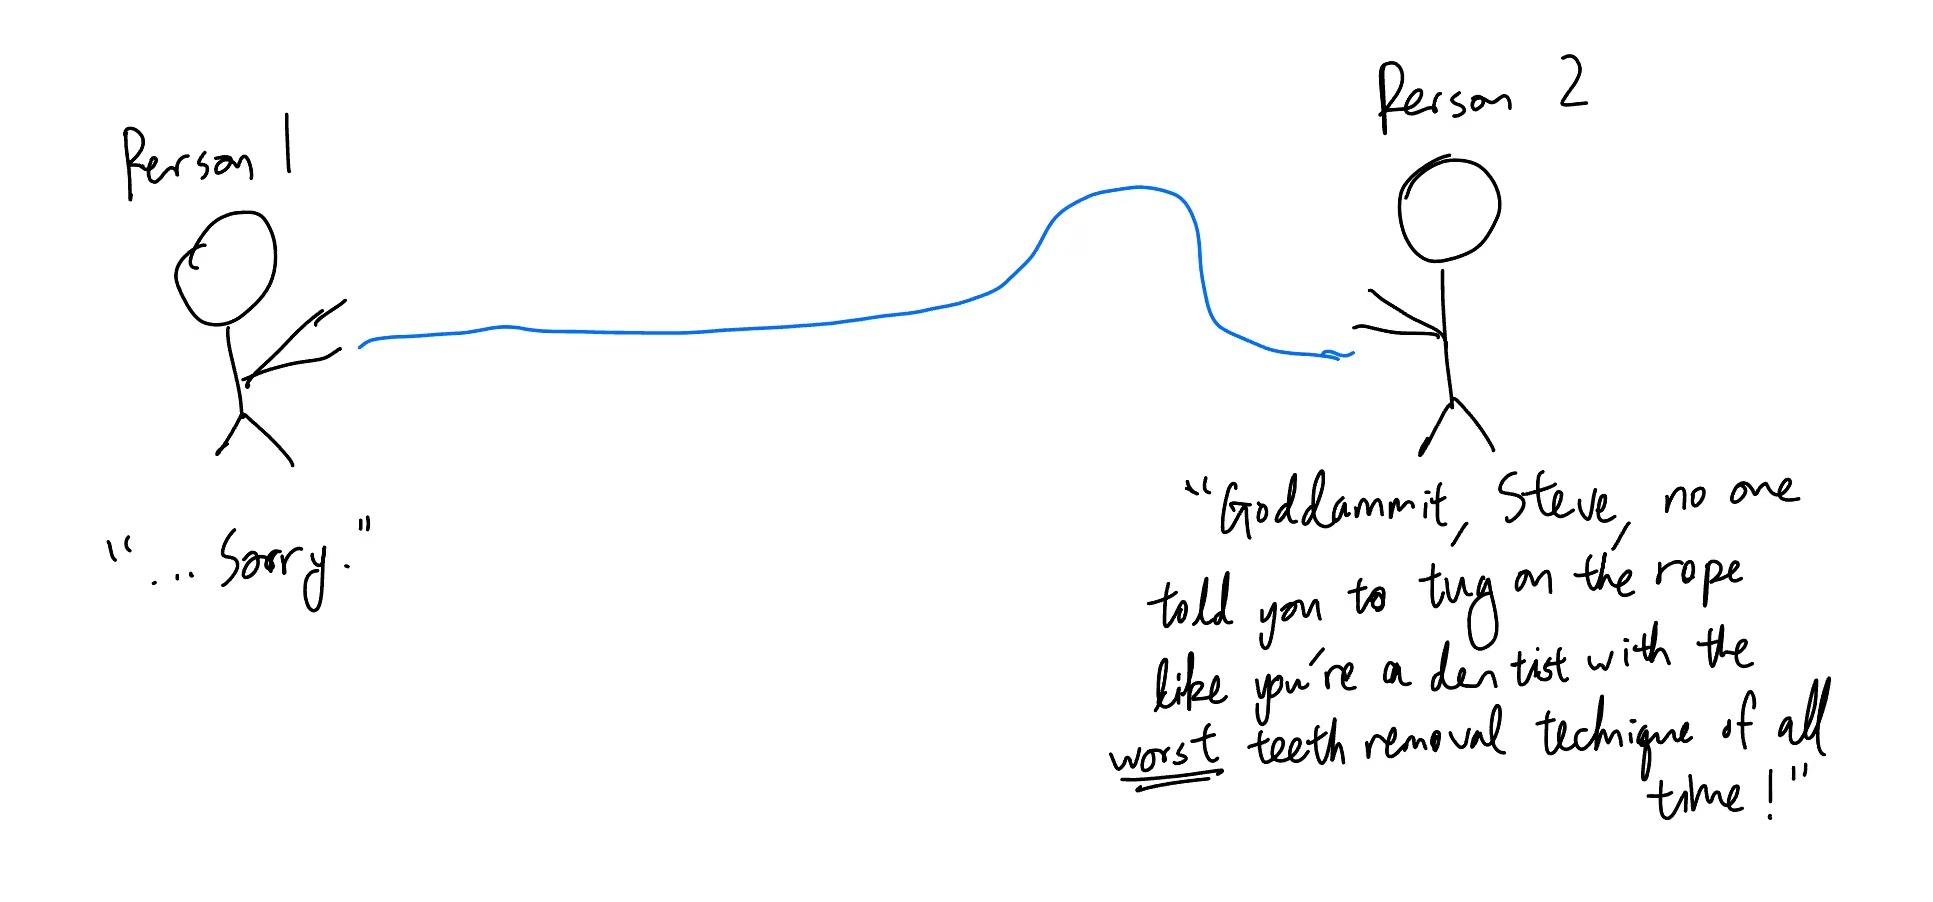 Person 1
Person 2
"... Sorry."
"Goddammit, Steve, no one
told you to tug on the rope
like you're a dentist with the
worst teeth removal technique of all
time!"